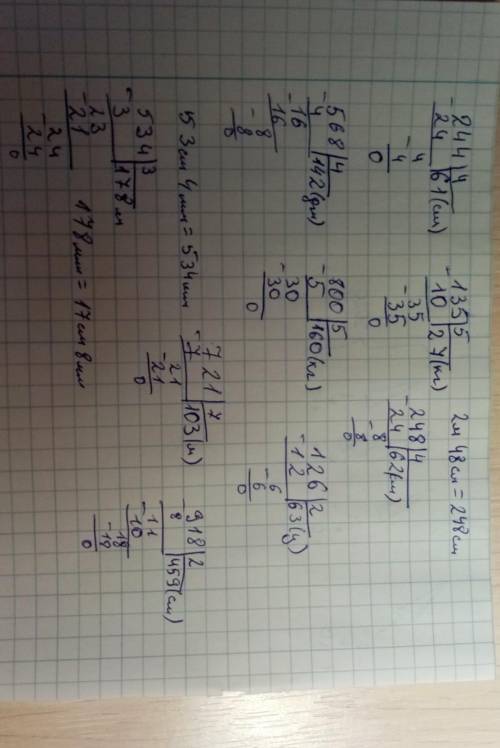 -244|4
24|61(см)
-4
4
0
-135|5
10|27(кг)
-35
35
0
2м 48см = 248см
-248|4
24|62(см)
-8
8
0
-568|4
4|142(дм)
-16
16
-8
8
0
-800|5
5|160(кг)
-30
30
0
126|2
-12|63(ц)
-6
6
0
53см 4мм = 534мм
534|3
-3|178м
-23
21
-24
24
0
178мм = 17см 8мм
721|7
-7|103(м)
-21
21
0
-918|2
8|459(см)
-11
10
-18
18
0